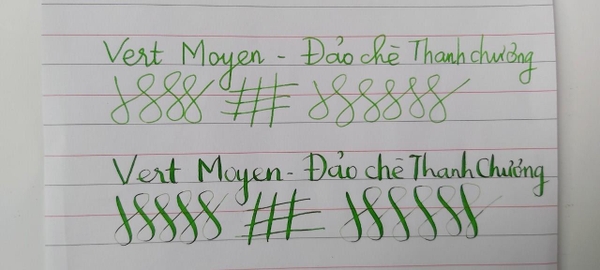 Vert Moyen - Đảo chè Thanh chương
Vert Moyen - Đảo chè Thanh Chương